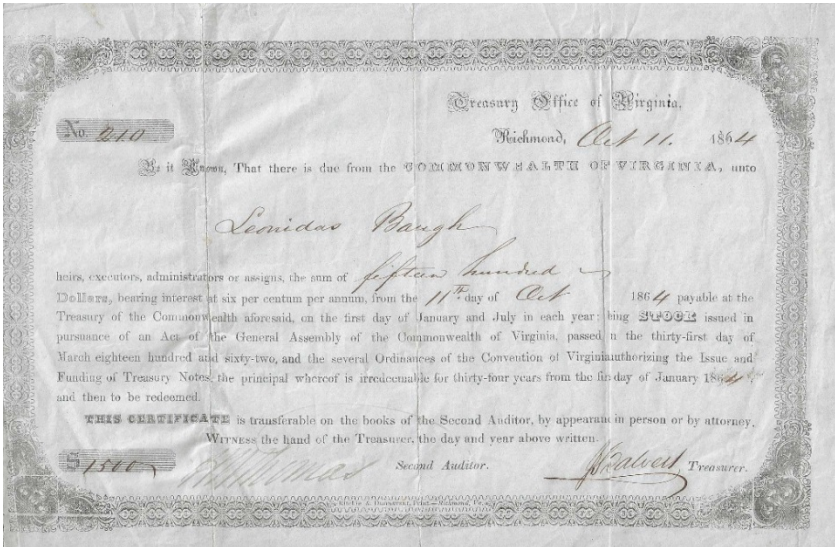 Treasury Office of Virginia,
No. 210
Richmond, Oct 11. 1864
Be it Known, That there is due from the COMMONWEALTH OF VIRGINIA, unto
Leonidas Baugh
heirs, executors, administrators or assigns, the sum of fifteen hundred
Dollars, bearing interest at six per centum per annum, from the 11th day of Oct 1864 payable at the
Treasury of the Commonwealth aforesaid, on the first day of January and July in each year: bing STOCK issued in
pursuance of an Act of the General Assembly of the Commonwealth of Virginia, passed n the thirty-first day of
March eighteen hundred and sixty-two, and the several Ordinances of the Convention of Virginiauthorizing the Issue and
Funding of Treasury Notes, the principal whereof is irredeemable for thirty-four years from the fir day of January 1864
and then to be redeemed.
THIS CERTIFICATE is transferable on the books of the Second Auditor, by appearane in person or by attorney.
WITNESS the hand of the Treasurer, the day and year above written.
$1500 Thomas Second Auditor. Calvert Treasurer.